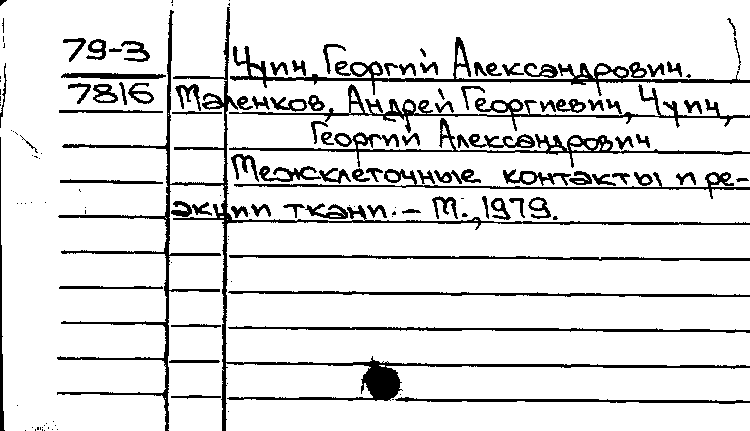 79-3 Чуич, Георгий Александрович.
7816 Маленков, Андрей Георгиевич, Чуич,
Георгий Александрович.
Межклеточные контакты и ре-
акции ткани. – М., 1979.